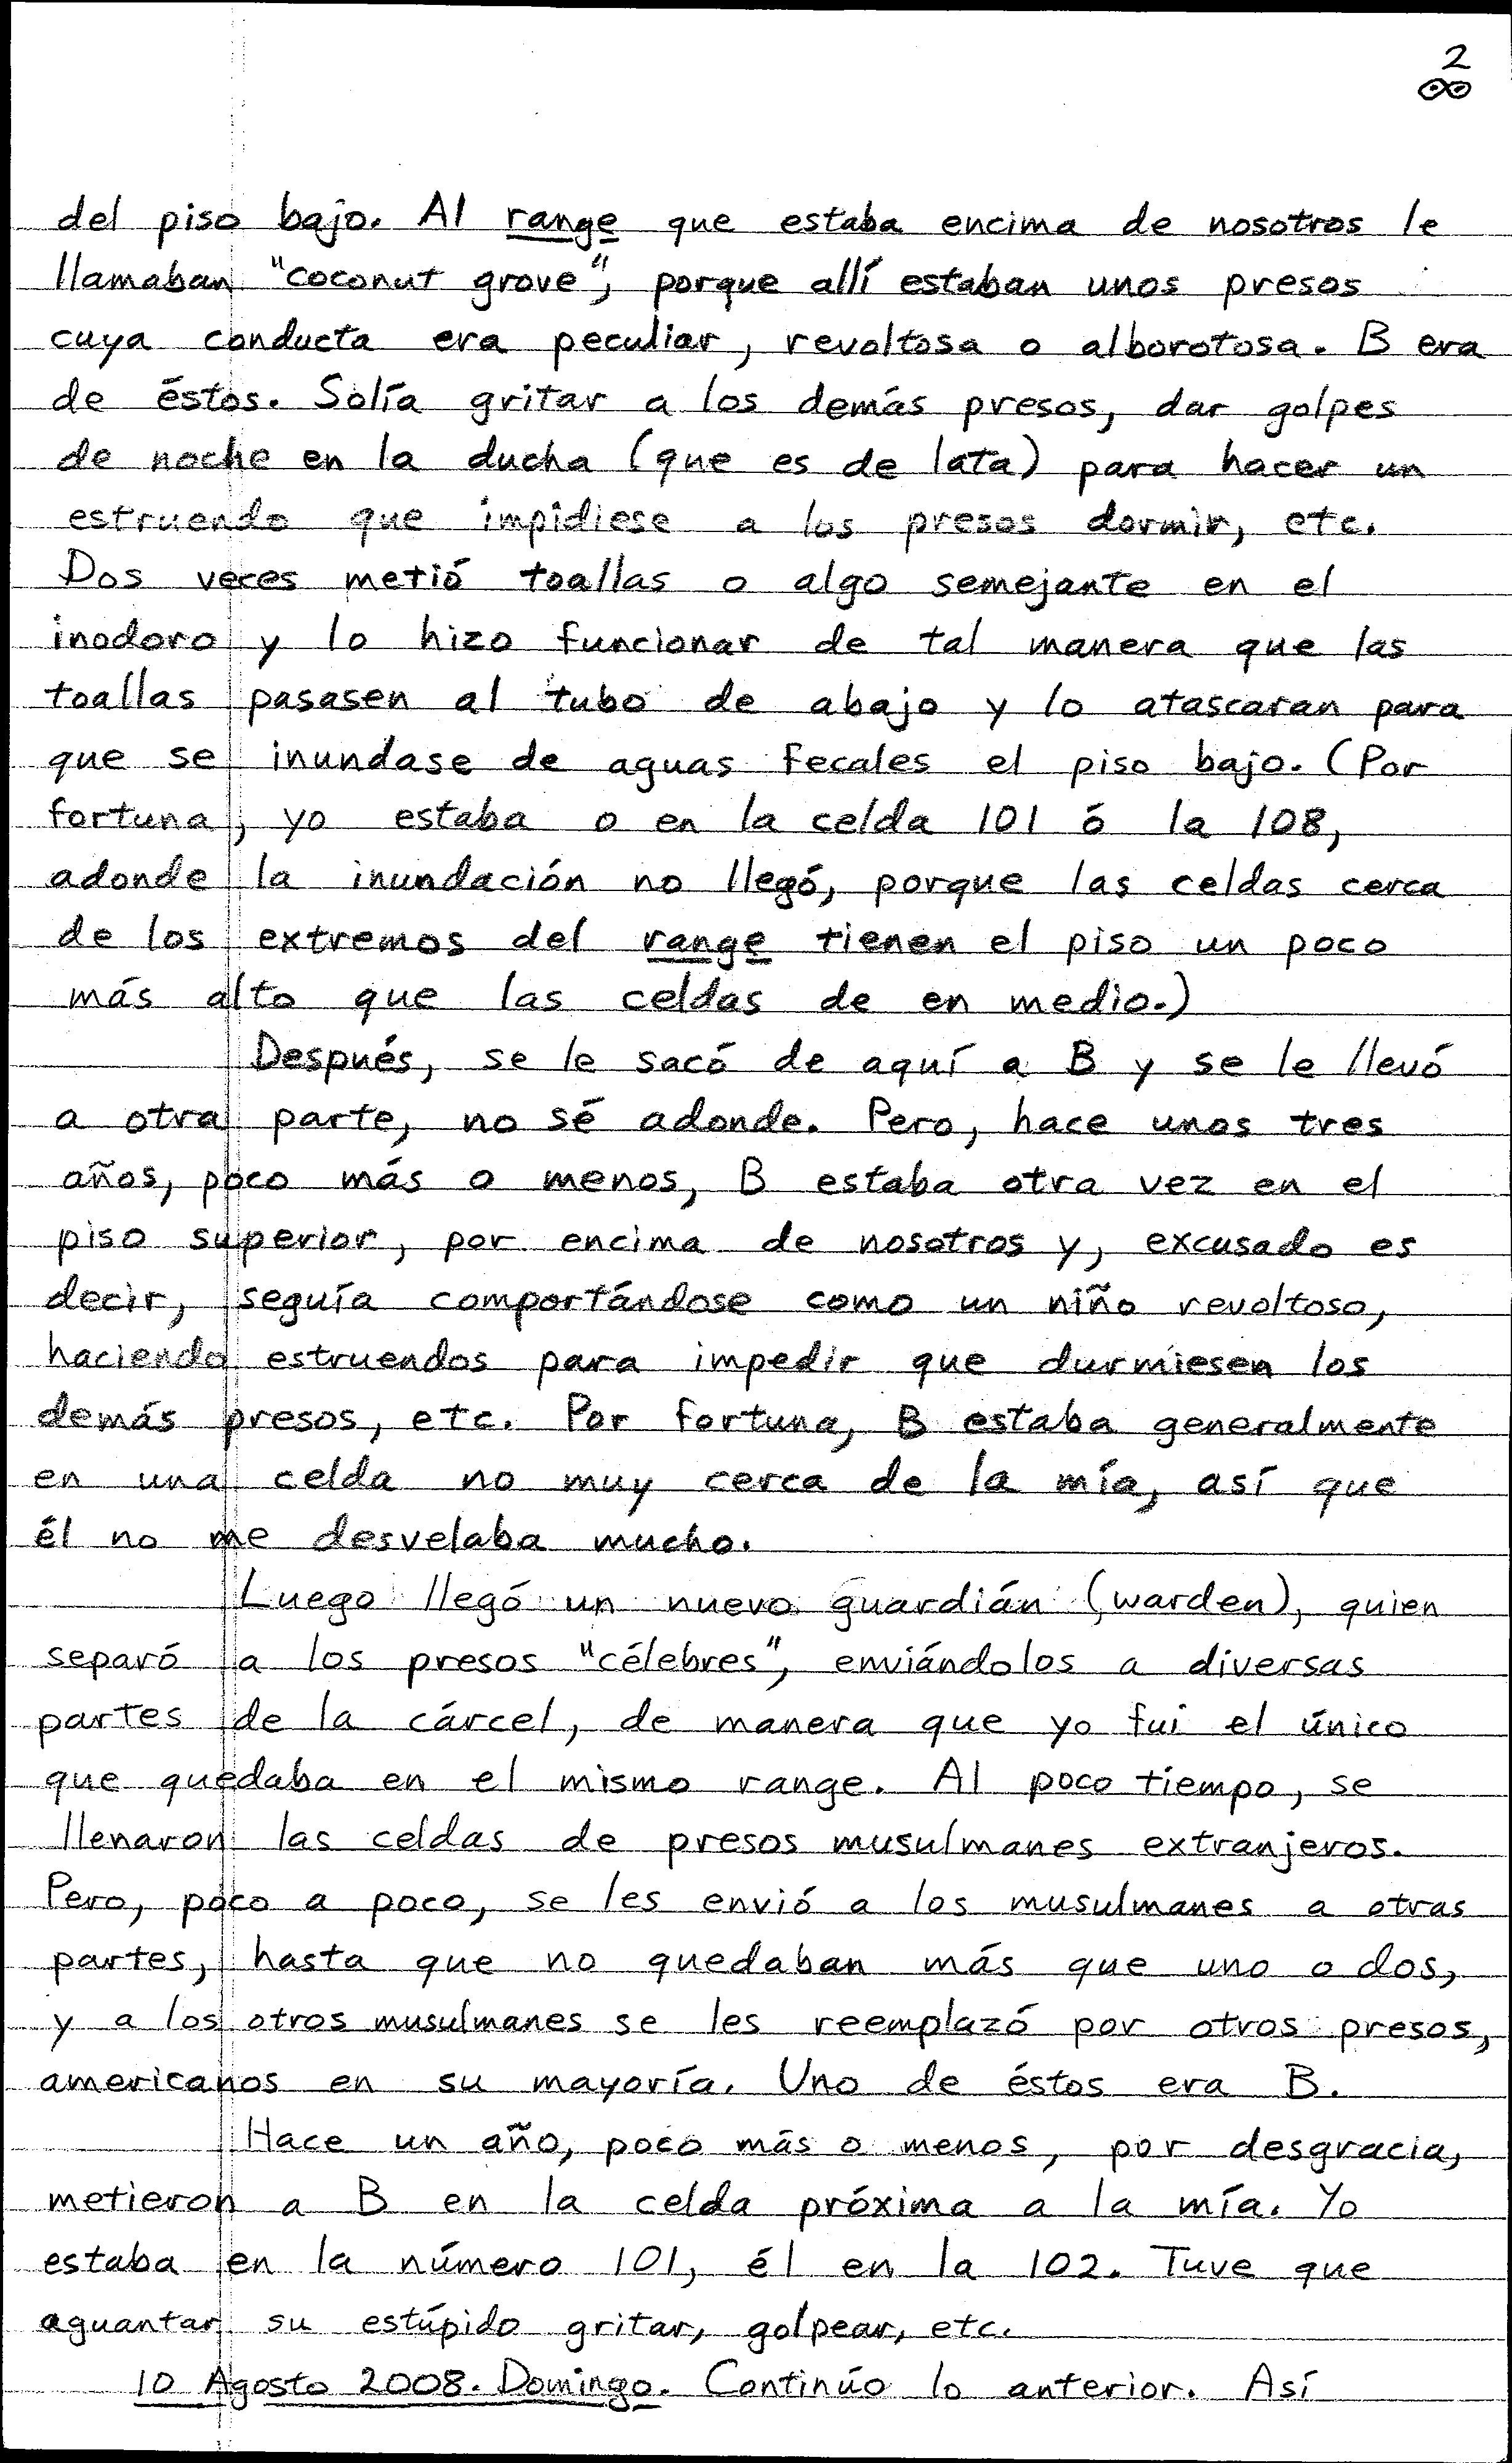 2
del piso bajo. Al range que estaba encima de nosotros le
llamaban "coconut grove", porque allí estaban unos presos
cuya conducta era peculiar, revoltosa o alborotosa. B era
de éstos. Solía gritar a los demás presos, dar golpes
de noche en la ducha (que es de lata) para hacer un
estruendo que impidiese a los presos dormir, etc.
Dos veces metió toallas o algo semejante en el
inodoro y lo hizo funcionar de tal manera que las
toallas pasasen al tubo de abajo y lo atascaran para
que se inundase de aguas fecales el piso bajo. (Por
fortuna, yo estaba o en la celda 101 ó la 108,
adonde la inundación no llegó, porque las celdas cerca
de los extremos del range tienen el piso un poco
más alto que las celdas de en medio.)
Después, se le sacó de aquí a B y se le llevó
a otra parte, no sé adonde. Pero, hace unos tres
años, poco más o menos, B estaba otra vez en el
piso superior, por encima de nosotros y, excusado es
decir, seguía comportándose como un niño revoltoso,
haciendo estruendos para impedir que durmiesen los
demás presos, etc. Por fortuna, B estaba generalmente
en una celda no muy cerca de la mía, así que
él no me desvelaba mucho.
Luego llegó un nuevo guardián (warden), quien
separó a los presos "célebres", enviándolos a diversas
partes de la cárcel, de manera que yo fui el único
que quedaba en el mismo range. Al poco tiempo, se
llenaron las celdas de presos musulmanes extranjeros.
Pero, poco a poco, se les envió a los musulmanes a otras
partes, hasta que no quedaban más que uno o dos,
y a los otros musulmanes se les reemplazó por otros presos,
americanos en su mayoría. Uno de éstos era B.
Hace un año, poco más o menos, por desgracia,
metieron a B en la celda próxima a la mía. Yo
estaba en la número 101, él en la 102. Tuve que
aguantar su estúpido gritar, golpear, etc.
10 Agosto 2008. Domingo. Continúo lo anterior. Así